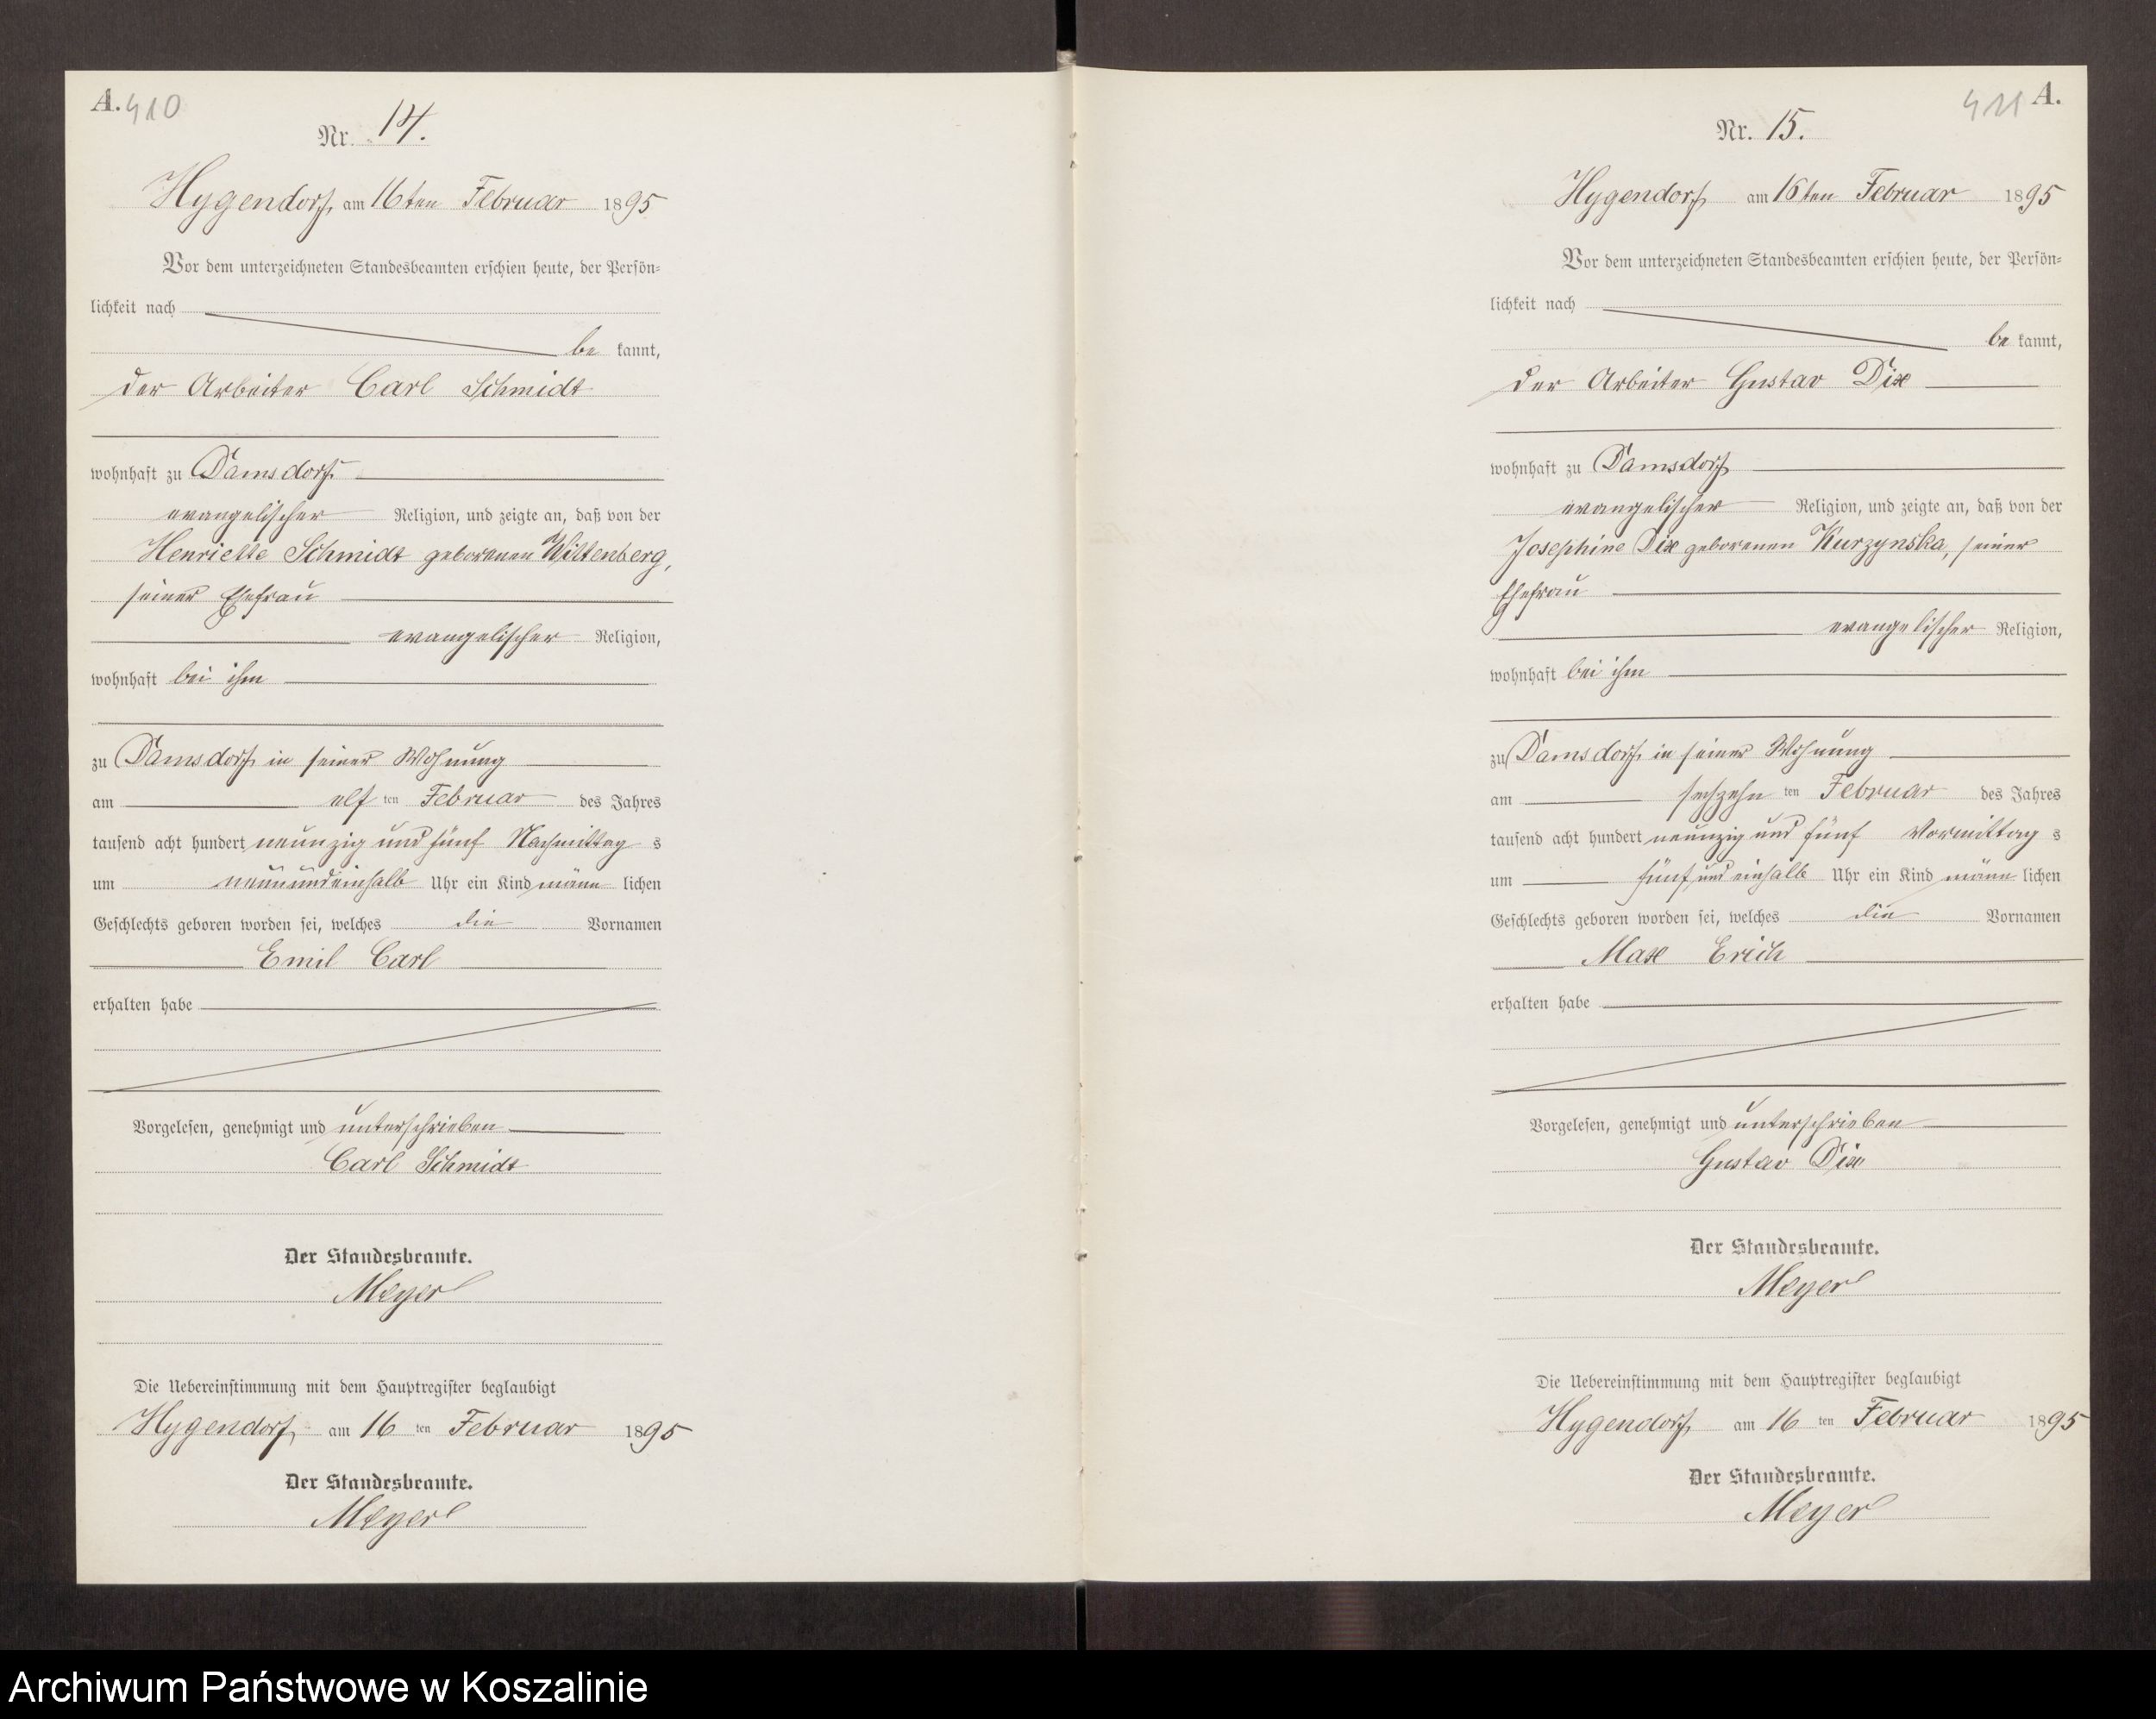 A. 410
Nr. 14.
Hygendorf, am 16ten Februar 1895
Vor dem unterzeichneten Standesbeamten erschien heute, der Persön-
lichkeit nach
be kannt,
der Arbeiter Carl Schmidt
wohnhaft zu Damsdorf
evangelischer Religion, und zeigte an, daß von der
Henriette Schmidt geborenen Wittenberg,
seiner Ehefrau
evangelischer Religion,
wohnhaft bei ihm
zu Damsdorf in seiner Wohnung
am elf ten Februar des Jahres
tausend acht hundert neunzig und fünf Nachmittag s
um neunundeinhalb Uhr ein Kind männ lichen
Geschlechts geboren worden sei, welches die Vornamen
Emil Carl
erhalten habe
Vorgelesen, genehmigt und unterschrieben
Carl Schmidt
Der Standesbeamte.
Meyer
Die Uebereinstimmung mit dem Hauptregister beglaubigt
Hygendorf, am 16 ten Februar 1895
Der Standesbeamte.
Meyer
411 A.
Nr. 15.
Hygendorf, am 16ten Februar 1895
Vor dem unterzeichneten Standesbeamten erschien heute, der Persön-
lichkeit nach
be kannt,
der Arbeiter Gustav Dix
wohnhaft zu Damsdorf
evangelischer Religion, und zeigte an, daß von der
Josephine Dix geborenen Kurzynska, seiner
Ehefrau
evangelischer Religion,
wohnhaft bei ihm
zu Damsdorf, in seiner Wohnung
am sechzehn ten Februar des Jahres
tausend acht hundert neunzig und fünf Vormittag s
um fünf und einhalb Uhr ein Kind männ lichen
Geschlechts geboren worden sei, welches die Vornamen
Max Erich
erhalten habe
Vorgelesen, genehmigt und unterschrieben
Gustav Dix
Der Standesbeamte.
Meyer
Die Uebereinstimmung mit dem Hauptregister beglaubigt
Hygendorf, am 16 ten Februar 1895
Der Standesbeamte.
Meyer
Archiwum Państwowe w Koszalinie